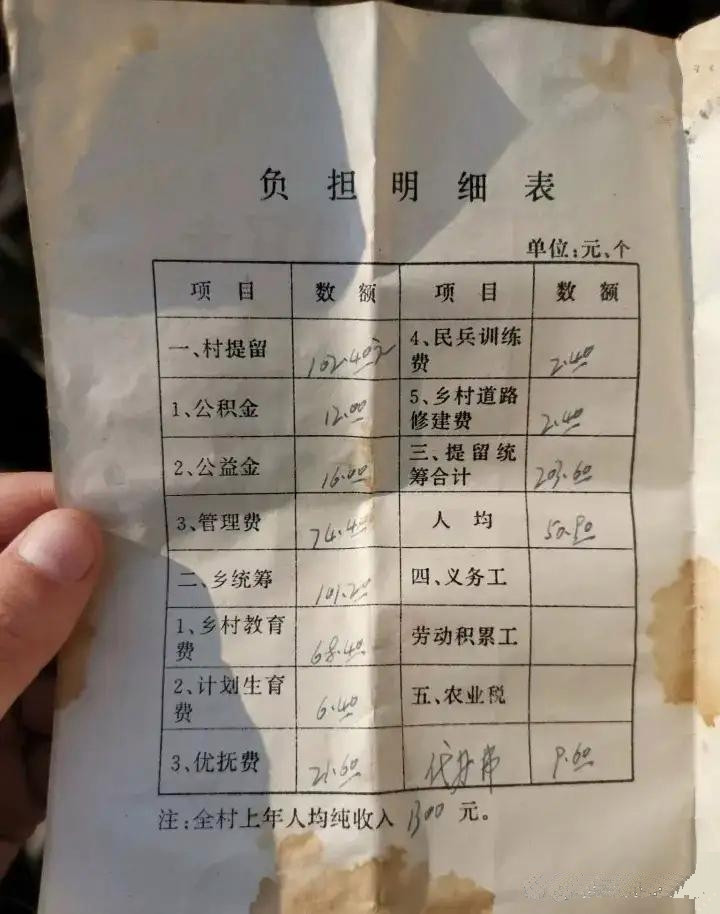 负担明细表
单位:元、个
项目 数额 项目 数额
一、村提留 102.40元 4、民兵训练费 2.40
1、公积金 12.00 5、乡村道路修建费 2.40
2、公益金 16.00 三、提留统筹合计 203.60
3、管理费 74.40 人均 50.90
二、乡统筹 101.20 四、义务工
1、乡村教育费 68.40 劳动积累工
2、计划生育费 6.40 五、农业税
3、优抚费 21.60 9.60
注:全村上年人均纯收入 1300 元。